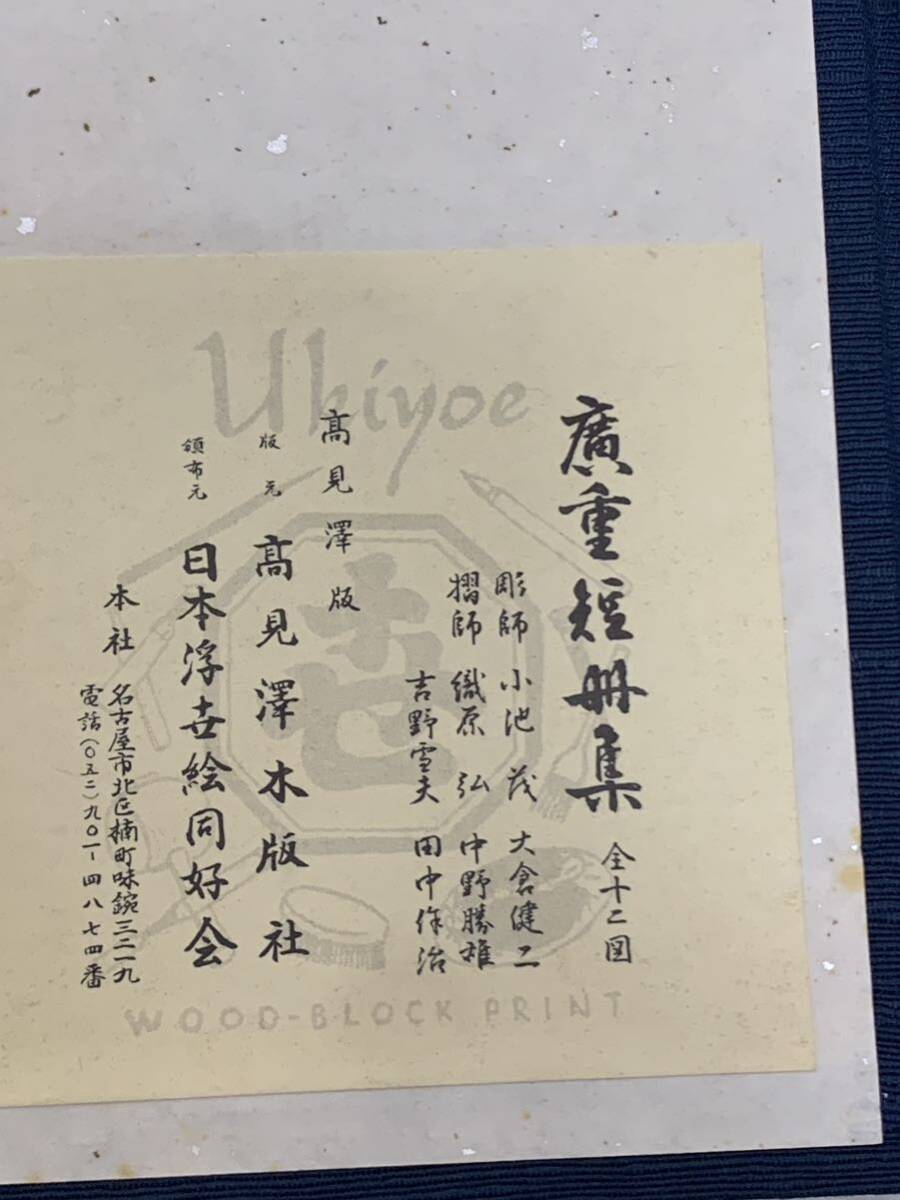 Ukiyoe
廣重短冊集 全十二図
彫師 小池茂 大倉健二
摺師 織原弘 中野勝雄
吉野雪夫 田中作治
高見澤版
版元 高見澤木版社
頒布元 日本浮世絵同好会
本社 名古屋市北区楠町味鋺三二一九
電話(〇五二)九〇一-四八七四番
WOOD-BLOCK PRINT